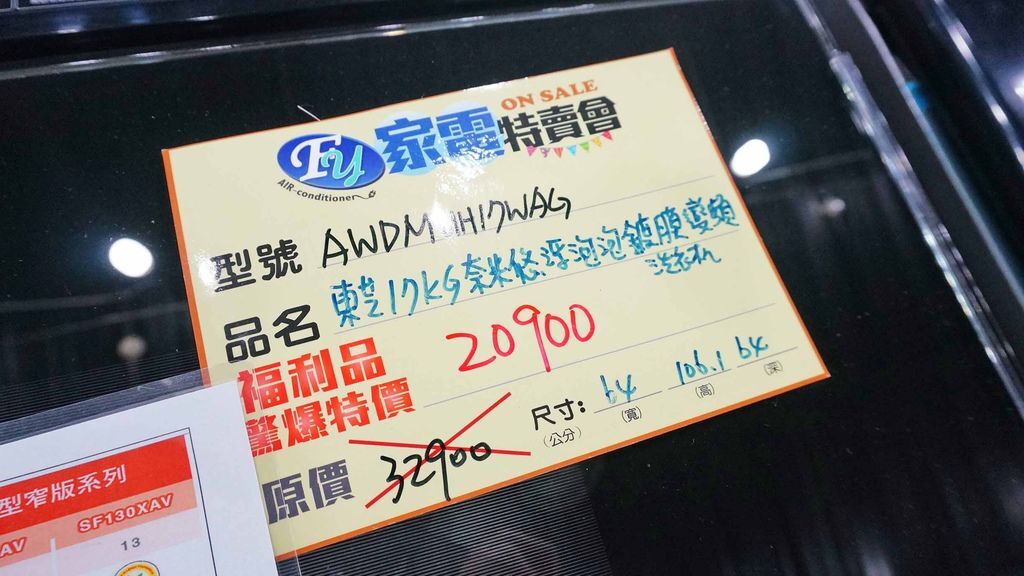 ON SALE
Fy 家電特賣會
AIR-conditioner
型號 AWDM 1H17WAG
品名 東芝17KG奈米悠浮泡泡鍍膜變頻
洗衣机
福利品
驚爆特價 20900
尺寸: 64 106.1 64
(公分) (寬) (高) (深)
原價 32900
型窄版系列
AV SF130XAV
13